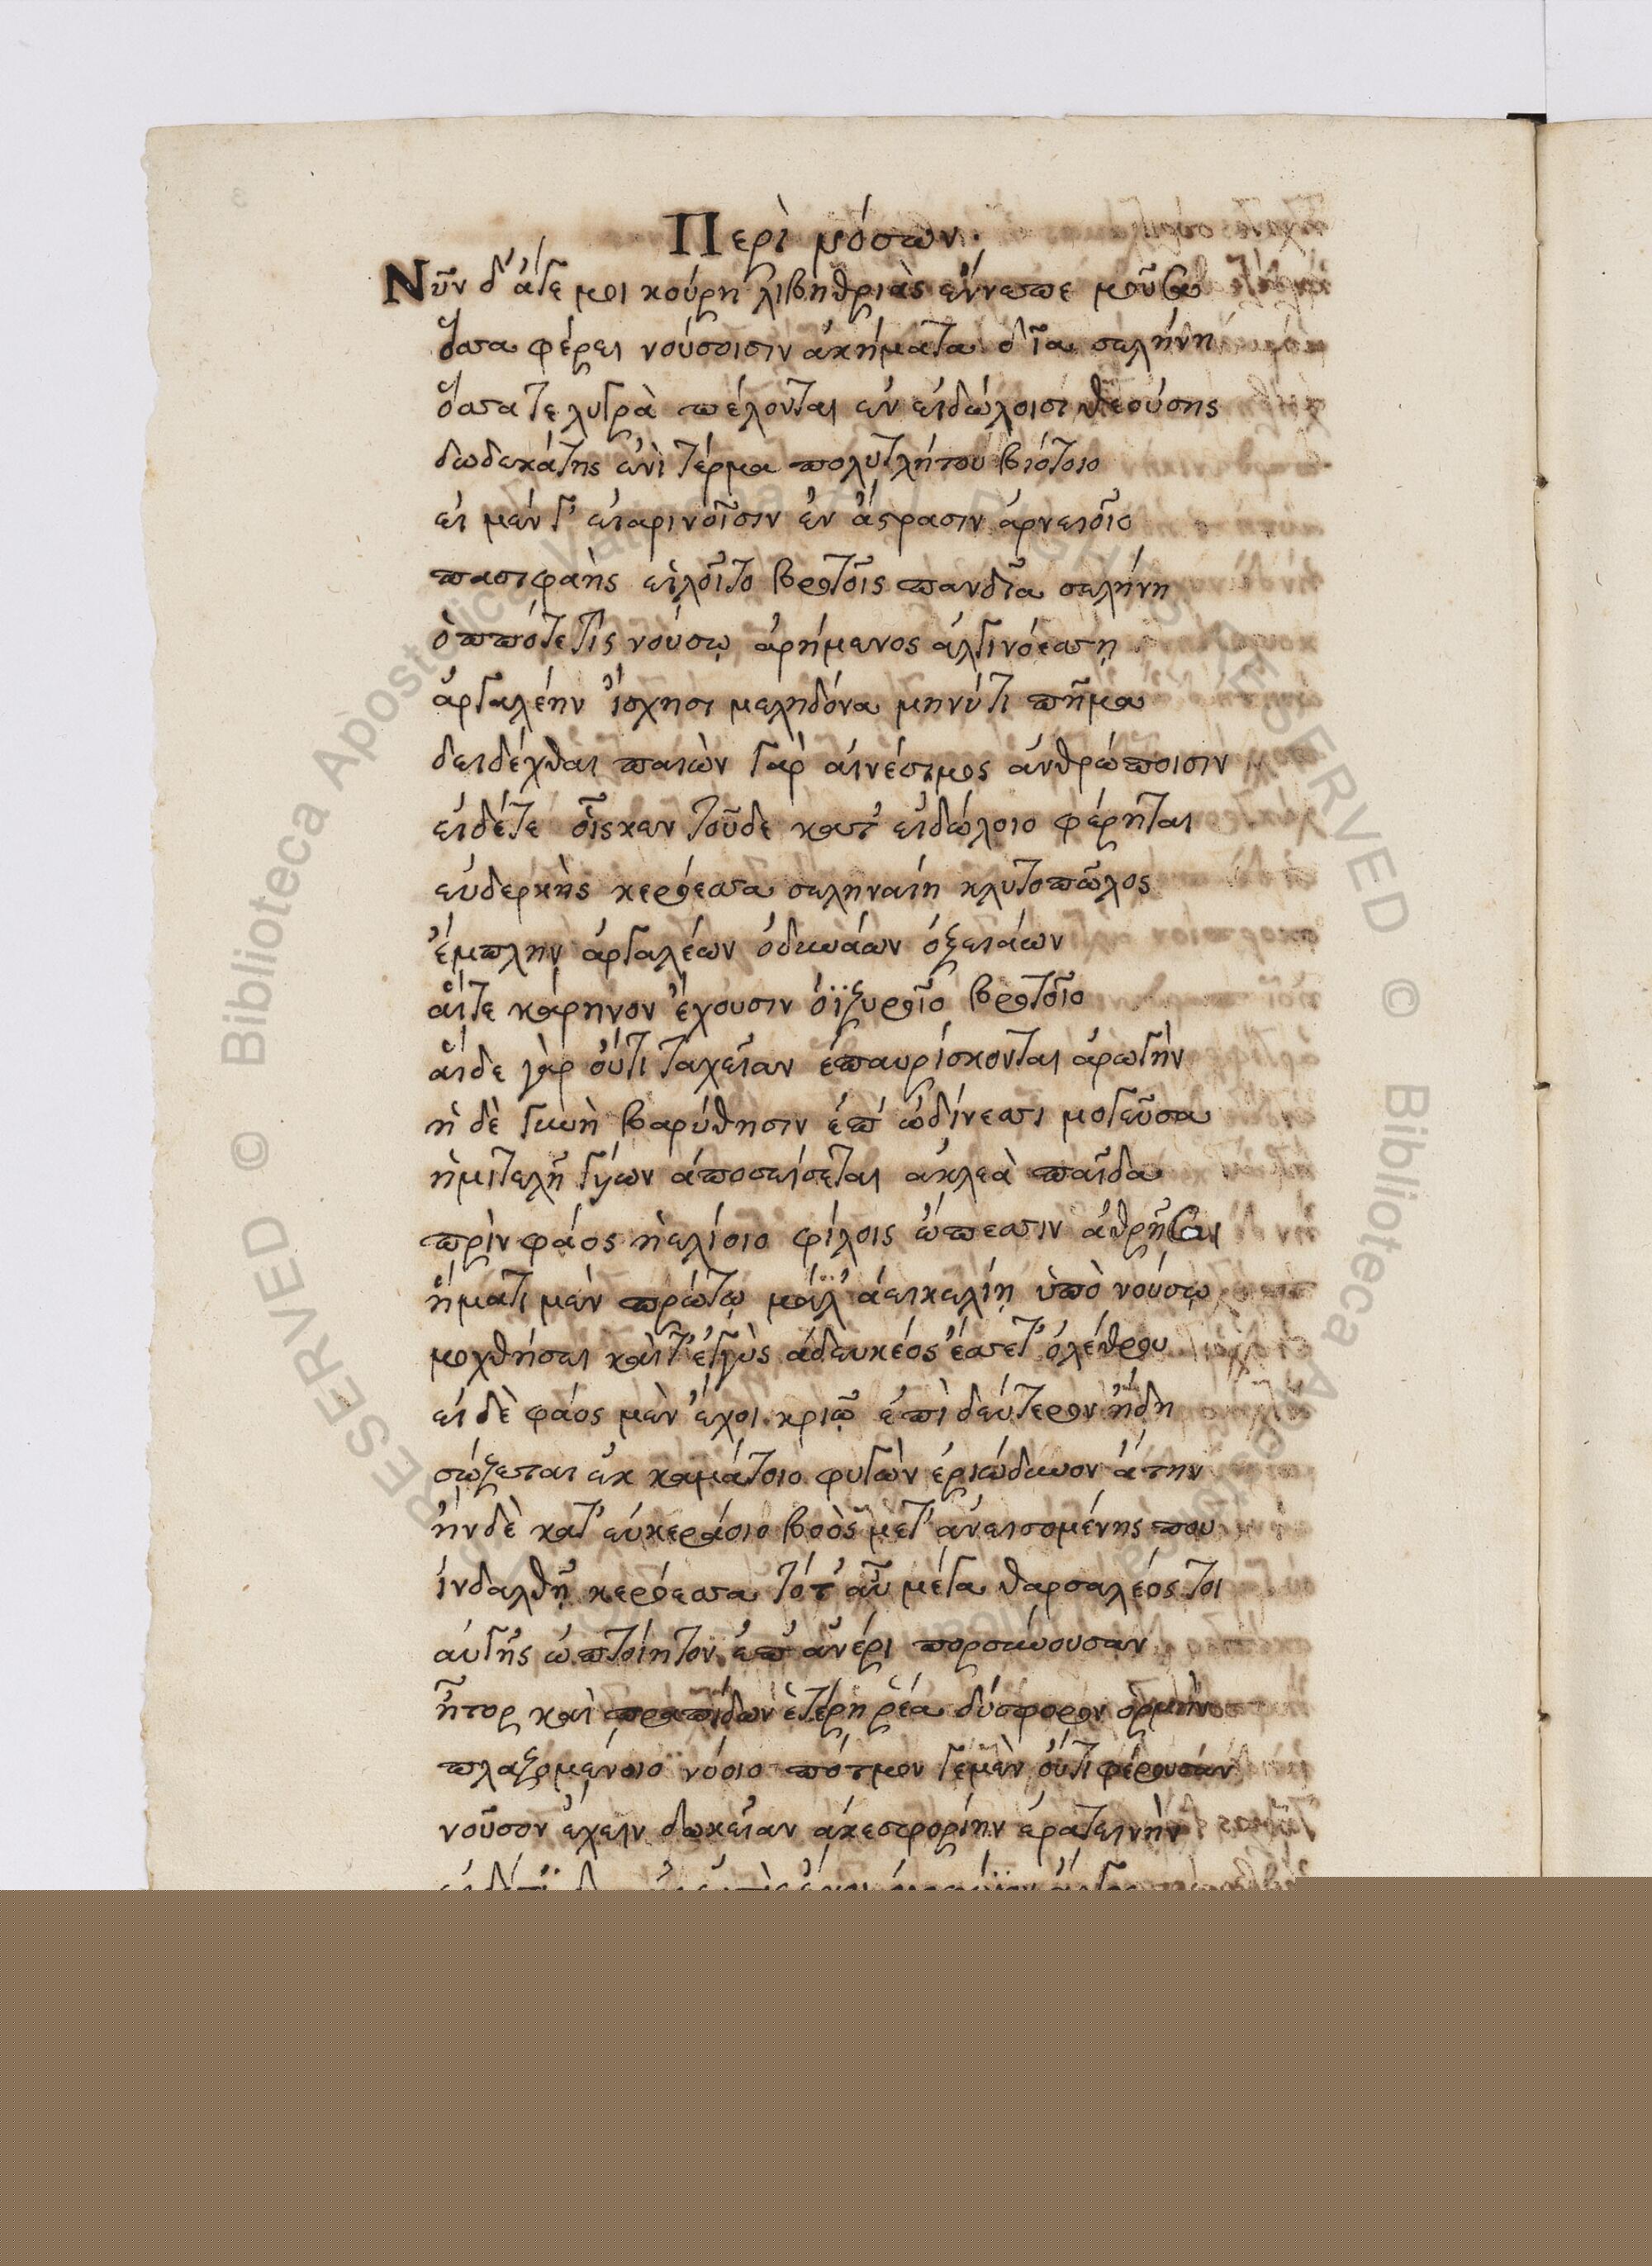 Περὶ νόσων.
Νῦν δ' ἄγε μοι κούρη λιβηθριὰς ἔννεπε μοῦσα
ὅσσα φέρει νούσοισιν ἀκήματα δῖα σελήνη
ὅσσα τε λυγρὰ πέλονται ἐν εἰδώλοισι θεούσης
δωδεκάτης ἐνὶ τέρμα πολυτλήτου βιότοιο
εἰ μέν γ' εἰαρινοῖσιν ἐν ἄστρασιν ἀρνειοῖο
πασιφαὴς εἰλοῖτο βροτοῖς πανδῖα σελήνη
ὁππότε τίς νούσῳ ἀρήμενος ἀλγινόεσσῃ
ἀργαλέην ἴσχησι μεληδόνα μηνύτι πῆμα
δειδέχθαι παιὼν γὰρ αἰνέσιμος ἀνθρώποισιν
εἰδέτε οἷς κεν τοῦδε κατ' εἰδώλοιο φέρηται
εὐδερκὴς κερόεσσα σεληναίη κλυτοπῶλος
ἔμπλην ἀργαλέων ὀδυνάων ὀξειάων
αἵτε κάρηνον ἔχουσιν ὀϊζυροῖο βροτοῖο
αἵδε γὰρ οὔτι ταχεῖαν ἐπαυρίσκονται ἀρωγὴν
ἡ δὲ γυνὴ βαρύθησιν ἐπ' ὠδίνεσσι μογεῦσα
ἡμιτελῆ γύων ἀποσείσεται ἀκλεὰ παῖδα
πρὶν φάος ἠελίοιο φίλοις ὤπεσσιν ἀθρῆσαι
ἤματι μὲν πρώτῳ μάλ' ἀεικελίῃ ὑπὸ νούσῳ
μοχθήσει καί τ' ἐγγὺς ἀδευκέος ἔσσετ' ὀλέθρου
εἰ δὲ φάος μὲν ἔχοι κριῷ ἐπὶ δεύτερον ἤδη
σώζεται ἐκ καμάτοιο φυγὼν ἐριώδυνον ἄτην
ἢν δὲ κατ' εὐκεράοιο βοὸς μετ' ἀνεισομένης που
ἰνδαλθῇ κερόεσσα τότ' αὖ μέγα θαρσαλέος τοι
αὐγῆς ὠπτοίητον ἐπ' ἀνέρι πορσύνουσαν
ἦτορ καὶ πραπίδων ἑτέρη ῥέα δύσφορον ὁρμὴν
πλαζομένοιο νόοιο πότμον γεμὲν οὔτι φέρουσαν
νοῦσον ἔχειν ὠκεῖαν ἀκεστορίην ἐρατεινὴν